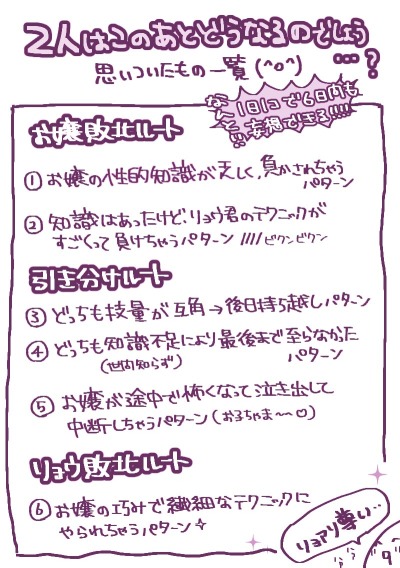 ２人はこのあとどうなるのでしょう…？
思いついたもの一覧(^o^)
なんと
1日1コで6日間も
妄想できる!!!!
お嬢敗北ルート
① お嬢の性的知識が乏しく、負かされちゃう
パターン
② 知識はあったけど、リョウ君のテクニックが
すごくって負けちゃうパターン //// ビクンビクン
引き分けルート
③ どっちも技量が互角→後日持ち越しパターン
④ どっちも知識不足により最後まで至らなかった
(世間知らず)
パターン
⑤ お嬢が途中で怖くなって泣き出して
中断しちゃうパターン(おろちゃま〜〜♡)
リョウ敗北ルート
⑥ お嬢の巧みで繊細なテクニックに
やられちゃうパターン
リョアリ尊い…